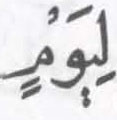 لِيَوْمٍ